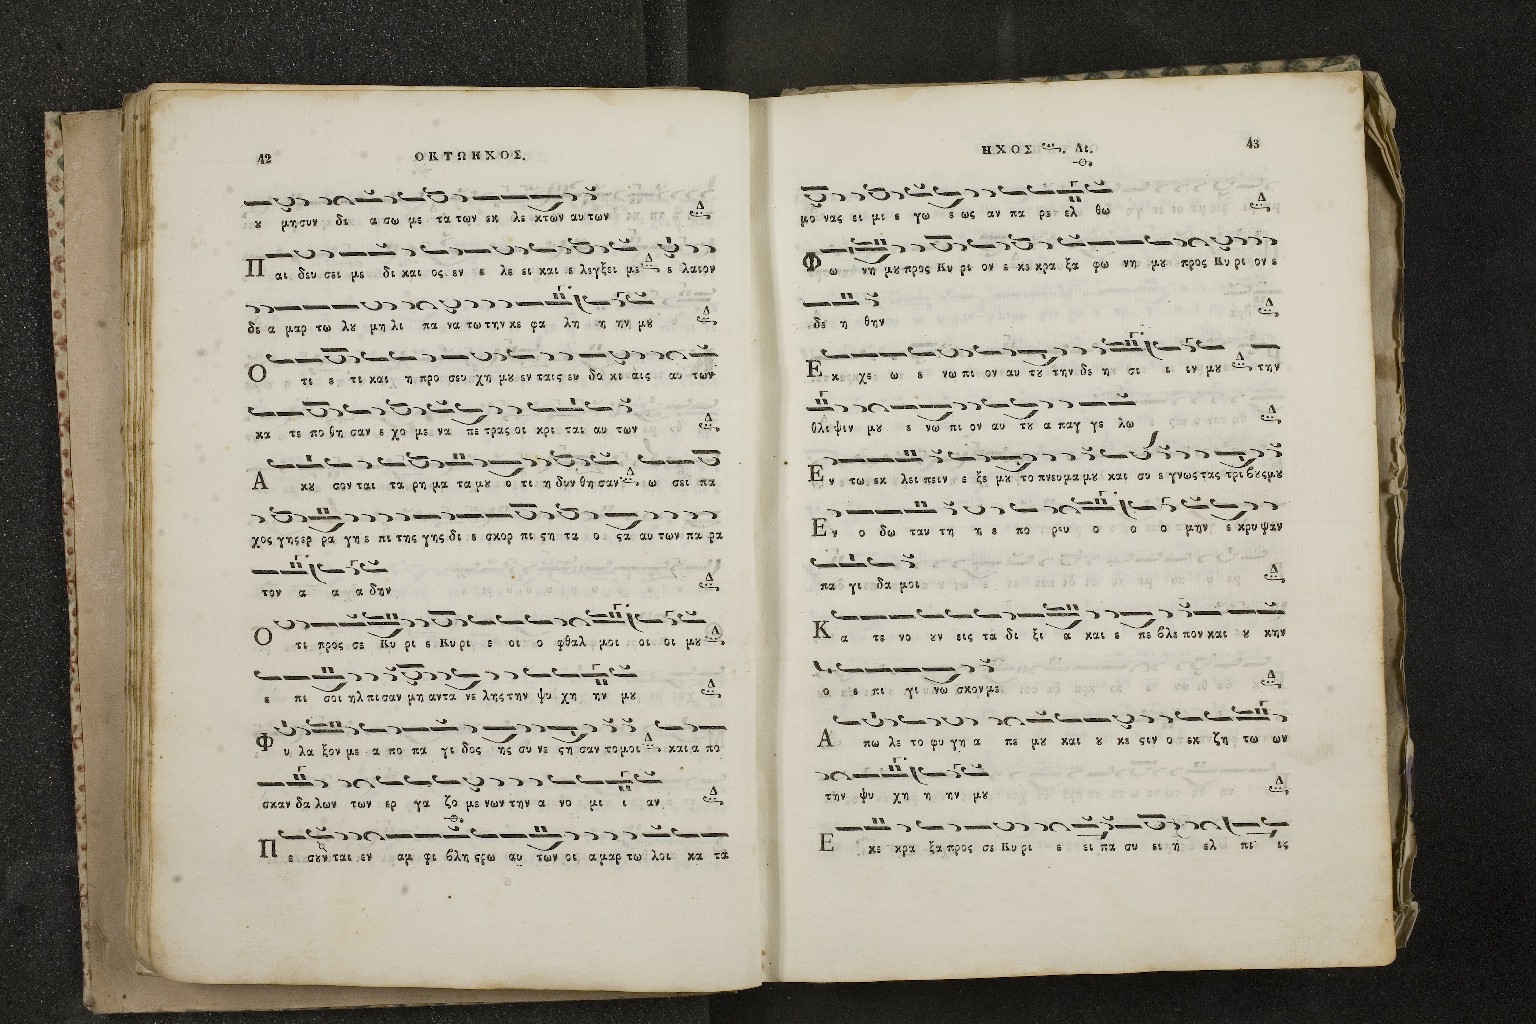 42
ΟΚΤΩΗΧΟΣ.
ȣ μησυν δυ α σω με τα των εκ λε κτων αυ των
Παι δευ σει με δι και ος εν ε λε ει και ε λεγξει με ε λαιον
δε α μαρ τω λȣ μη λι πα να τω την κε φα λη η ην μȣ
Ο τι ε τι και η προ σευ χη μȣ εν ταις ευ δο κι αις αυ των
κα τε πο θη σαν ε χο με να πε τρας οι κρι ται αυ των
Α κȣ σον ται τα ρη μα τα μȣ ο τι η δυν θη σαν ω σει πα
χος γης ερ ρα γη ε πι της γης δι ε σκορ πι ϛη τα ο ϛα αυ των πα ρα
τον α α α δην
Ο τι προς σε Κυ ρι ε Κυ ρι ε οι ο φθαλ μοι οι οι μȣ
ε πι σοι ηλ πι σαν μη αντα νε λης την ψυ χη ην μȣ
Φυ λα ξον με α πο πα γι δος ης συ νε ϛη σαν το μοι και α πο
σκαν δα λων των ερ γα ζο με νων την α νο μι ι αν
Πε σουν ται εν αμ φι βλη ϛρω αυ των οι α μαρ τω λοι κα τα
ΗΧΟΣ Δι.
43
μο νας ει μι ε γω ε ως αν πα ρε ελ θω
Φω νη μȣ προς Κυ ρι ον ε κε κρα ξα φω νη μȣ προς Κυ ρι ον ε
δε η θην
Εκ χε ω ε νω πι ον αυ τȣ την δε η σι ι ιν μȣ την
θλι ψιν μȣ ε νω πι ον αυ τȣ α παγ γε λω
Εν τω εκ λει πειν ε ξε μȣ το πνευ μα μȣ και συ ε γνως τας τρι βȣς μȣ
Εν ο δω ταυ τη η ε πο ρευ ο ο ο μην ε κρυ ψαν
πα γι δα μοι
Κα τε νο ȣν εις τα δι ξι α και ε πε βλε πον και ȣ κην
ο ε πι γι νω σκον με
Α πω λε το φυ γη α πε μȣ και ȣ κε ϛιν ο εκ ζη τω ων
την ψυ χη η ην μȣ
Ε κε κρα ξα προς σε Κυ ρι ε ει πα συ ει η ελ πι ις